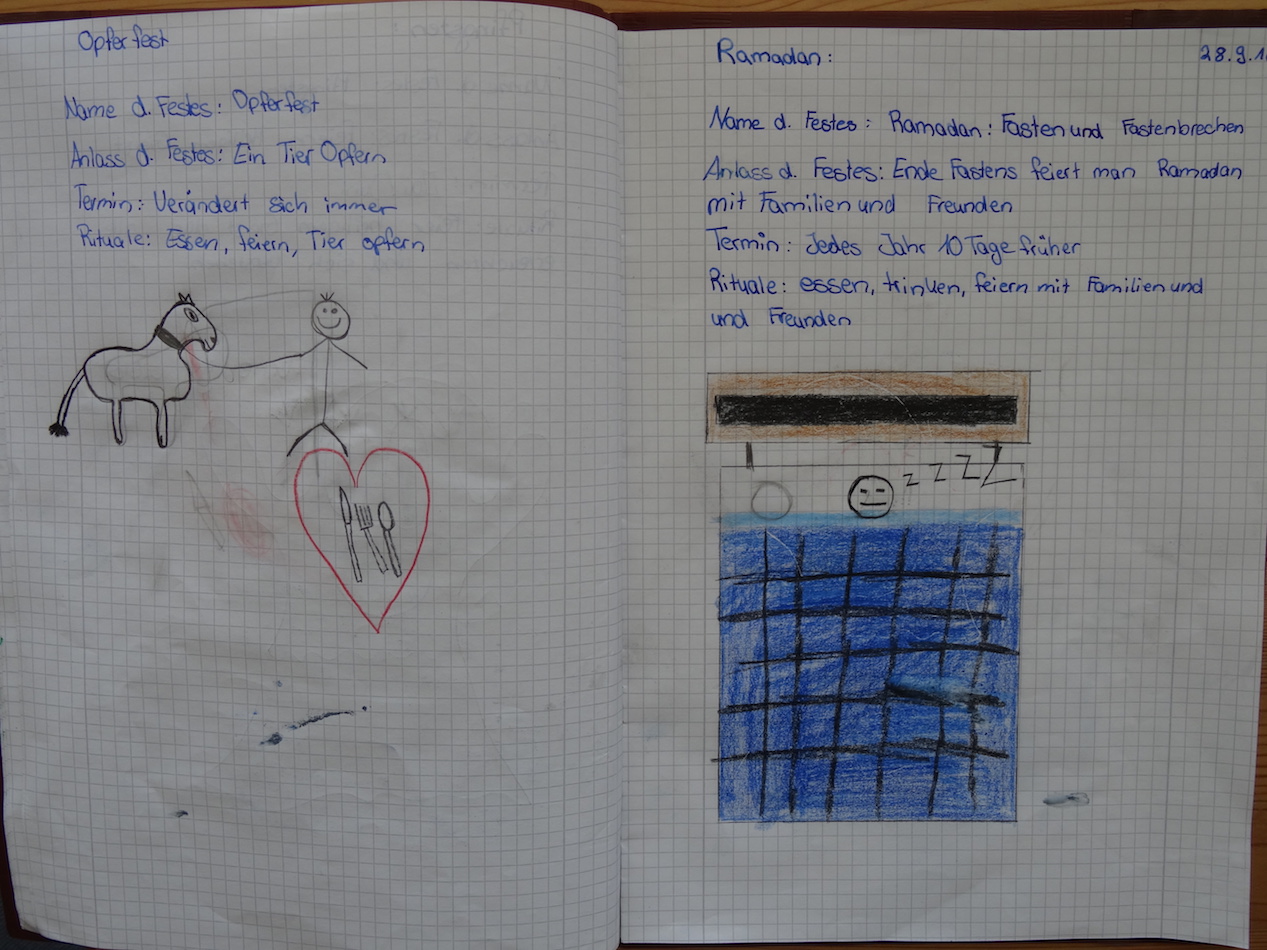 Opferfest
Name d. Festes: Opferfest
Anlass d. Festes: Ein Tier Opfern
Termin: Verändert sich immer
Rituale: Essen, feiern, Tier opfern
Ramadan:
28.9.1
Name d. Festes: Ramadan: Fasten und Fastenbrechen
Anlass d. Festes: Ende Fastens feiert man Ramadan
mit Familien und Freunden
Termin: Jedes Jahr 10 Tage früher
Rituale: essen, trinken, feiern mit Familien und
und Freunden
z z z Z